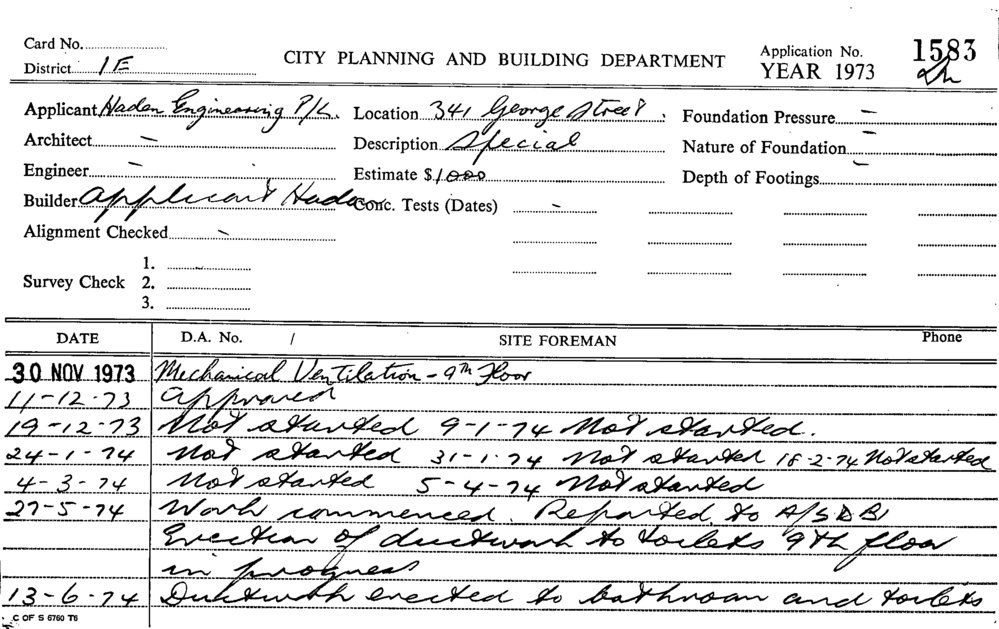 Card No.
District 1E
CITY PLANNING AND BUILDING DEPARTMENT
Application No. 1583
YEAR 1973
Applicant Haden Engineering P/L. Location 341 George Street. Foundation Pressure –
Architect – Description Special Nature of Foundation –
Engineer – Estimate $ 1000 Depth of Footings –
Builder Applicant Haden Conc. Tests (Dates) –
Alignment Checked –
Survey Check 1.
2.
3.
DATE D.A. No. / SITE FOREMAN Phone
30 NOV 1973 Mechanical Ventilation - 9th Floor
11-12-73 Approved
19-12-73 Not started 9-1-74 Not started.
24-1-74 Not started 31-1-74 Not started 18-2-74 Not started
4-3-74 Not started 5-4-74 Not started
27-5-74 Work commenced. Reported to A/SDBI
Erection of ductwork to toilets 9th floor
in progress
13-6-74 Ductwork erected to bathroom and toilets
C OF S 6760 T6